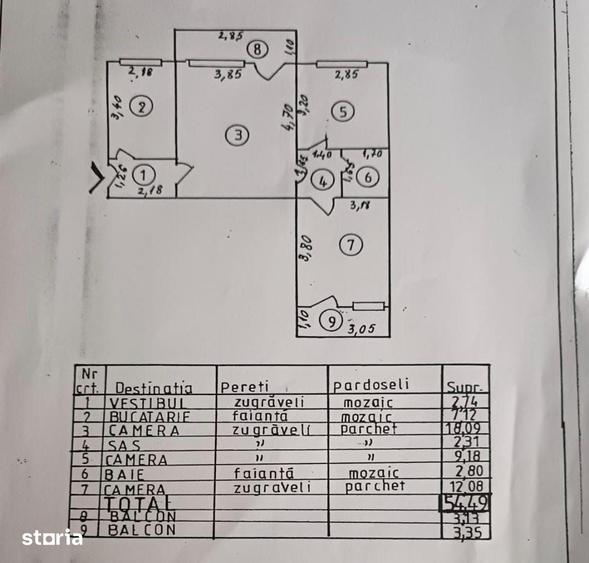 2,85
8
1,10
2,18
3,85
2,85
3,40
2
3
4,70
3,20
5
1,26
1
2,18
1,40
1,70
1,65
4
1,65
6
3,18
3,80
7
1,10
9
3,05
Nr crt. Destinatia Pereti pardoseli Supr.
1 VESTIBUL zugrăveli mozaic 2,74
2 BUCATARIE faiantă mozaic 7,12
3 CAMERA zugrăveli parchet 18,09
4 SAS " " 2,31
5 CAMERA " " 9,18
6 BAIE faiantă mozaic 2,80
7 CAMERA zugraveli parchet 12,08
TOTAL 54,49
8 BALCON 3,13
9 BALCON 3,35
storia